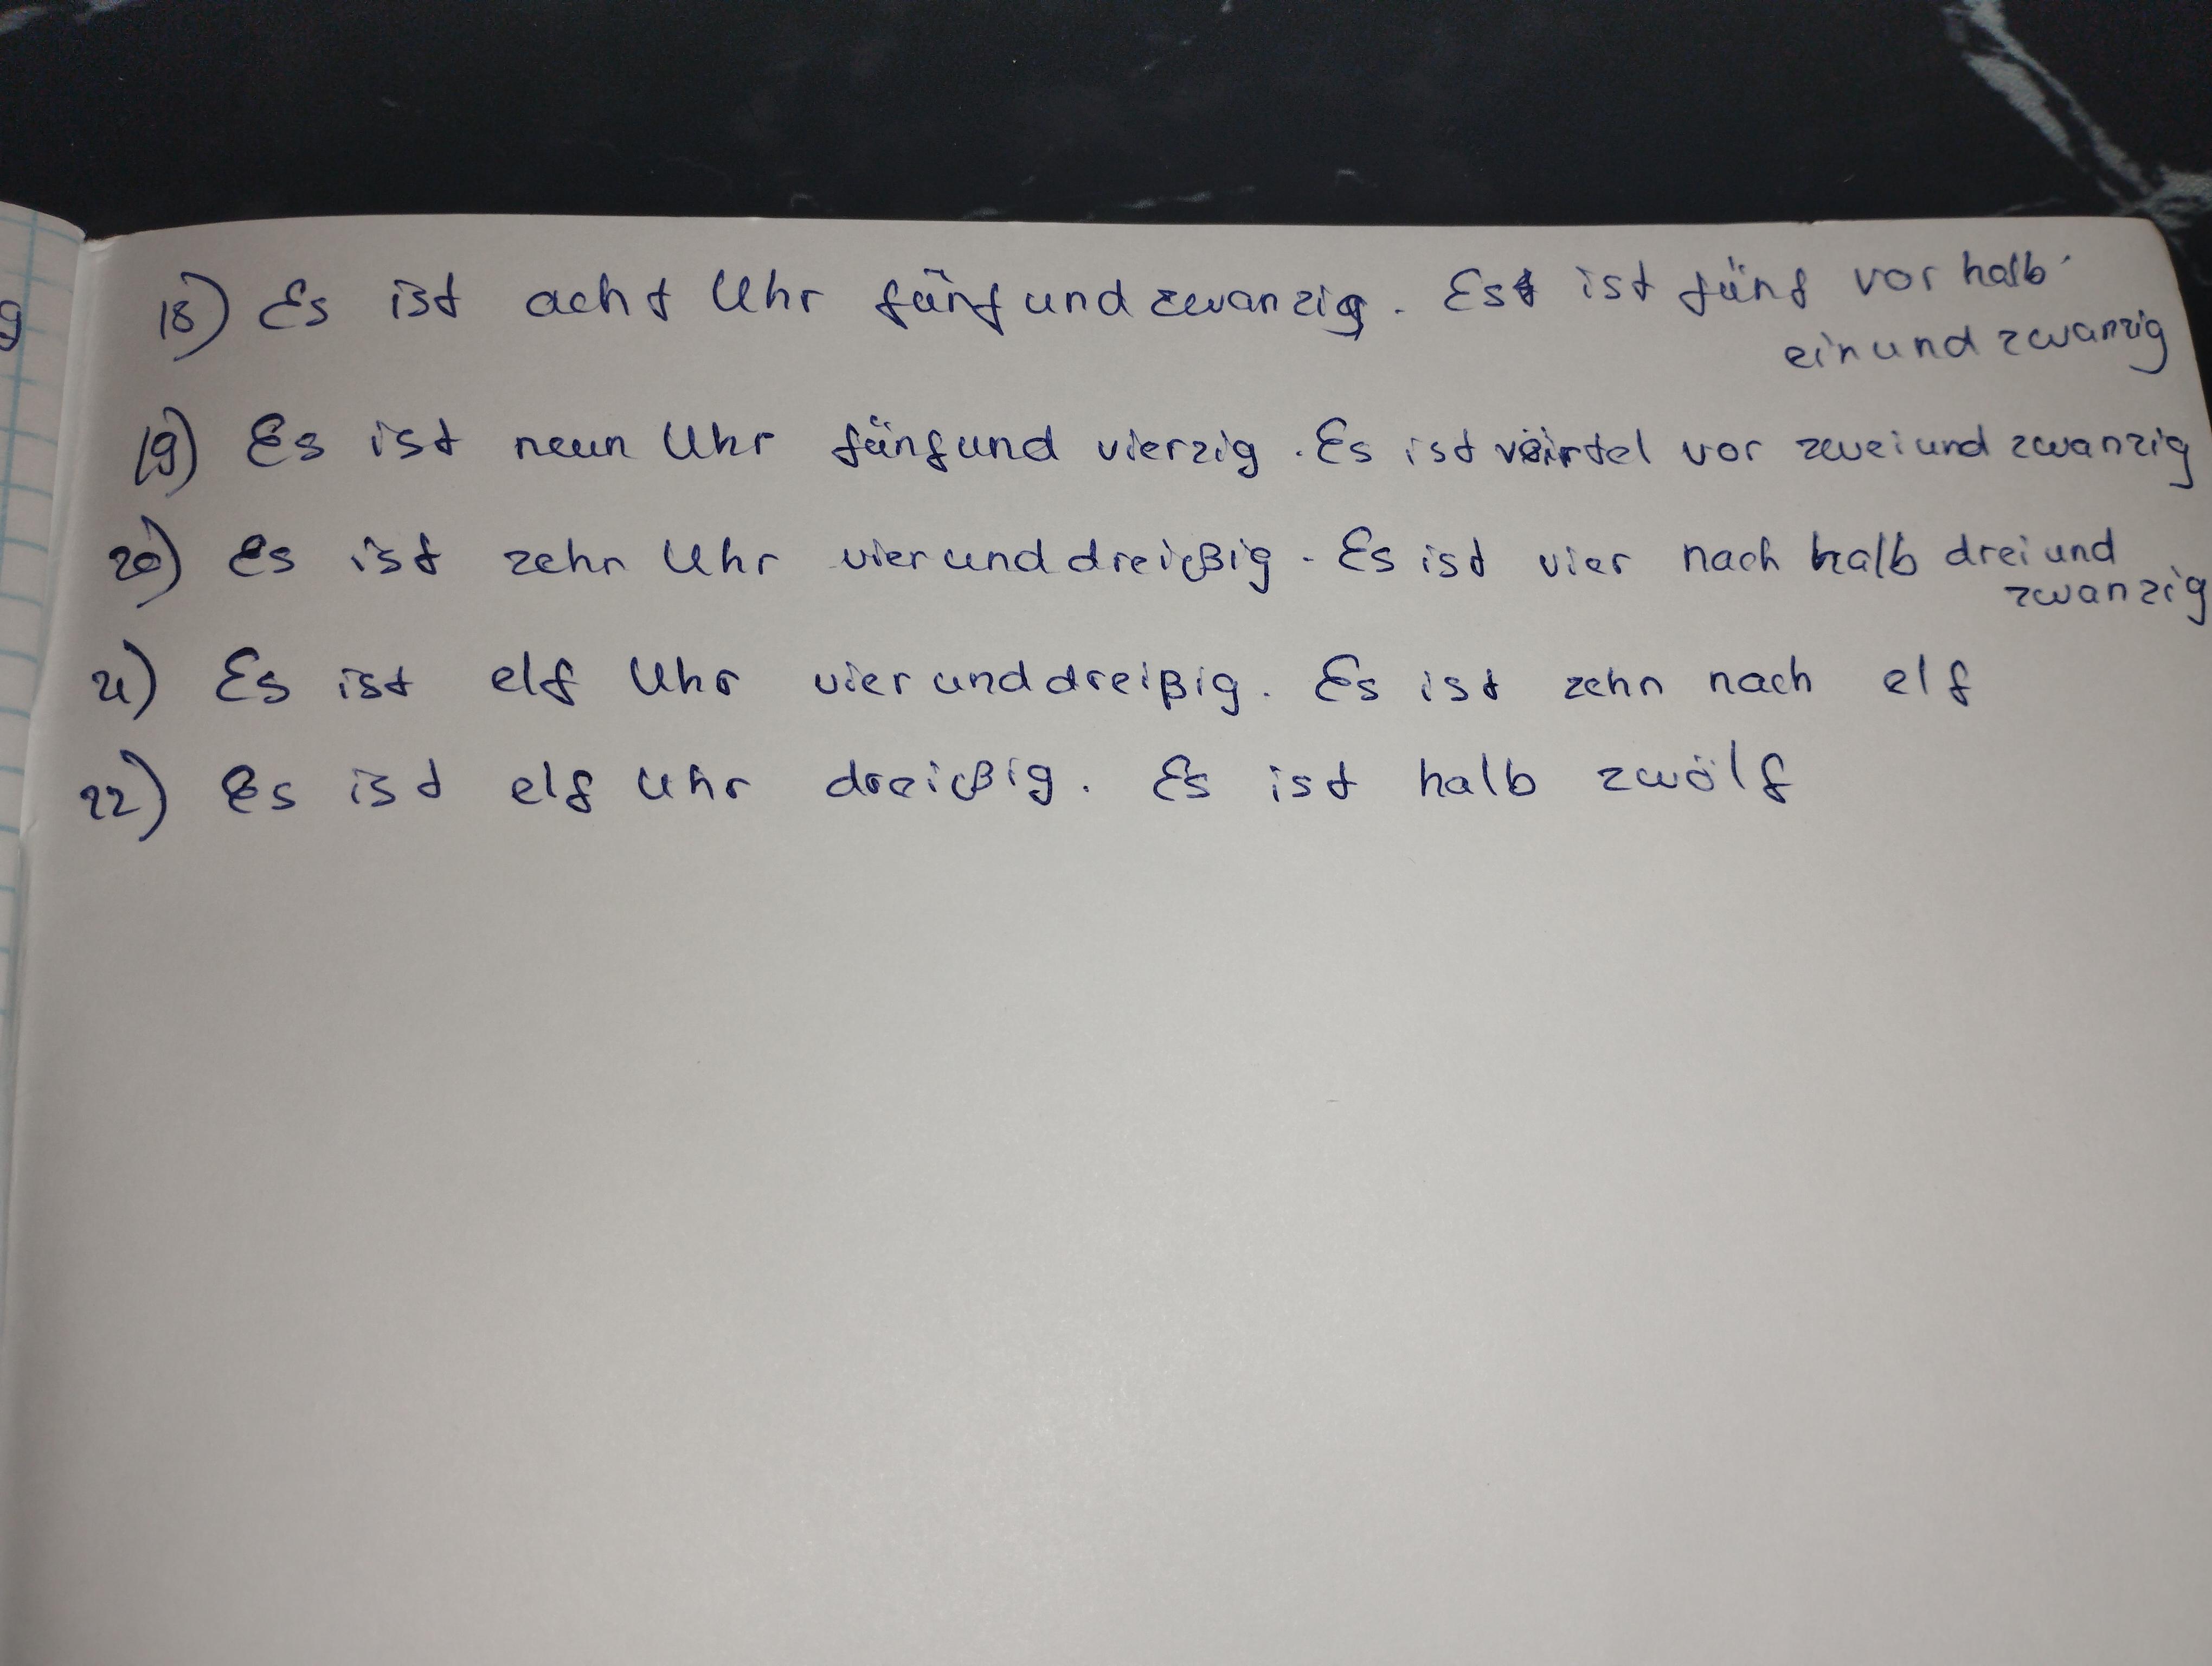 g
18) Es ist acht Uhr fünfundzwanzig. Es ist fünf vor halb
einundzwanzig
19) Es ist neun Uhr fünfund vierzig. Es ist viertel vor zweiund zwanzig
20) Es ist zehn Uhr vierunddreißig. Es ist vier nach halb dreiund
zwanzig
21) Es ist elf Uhr vierunddreißig. Es ist zehn nach elf
22) Es ist elf Uhr dreißig. Es ist halb zwölf